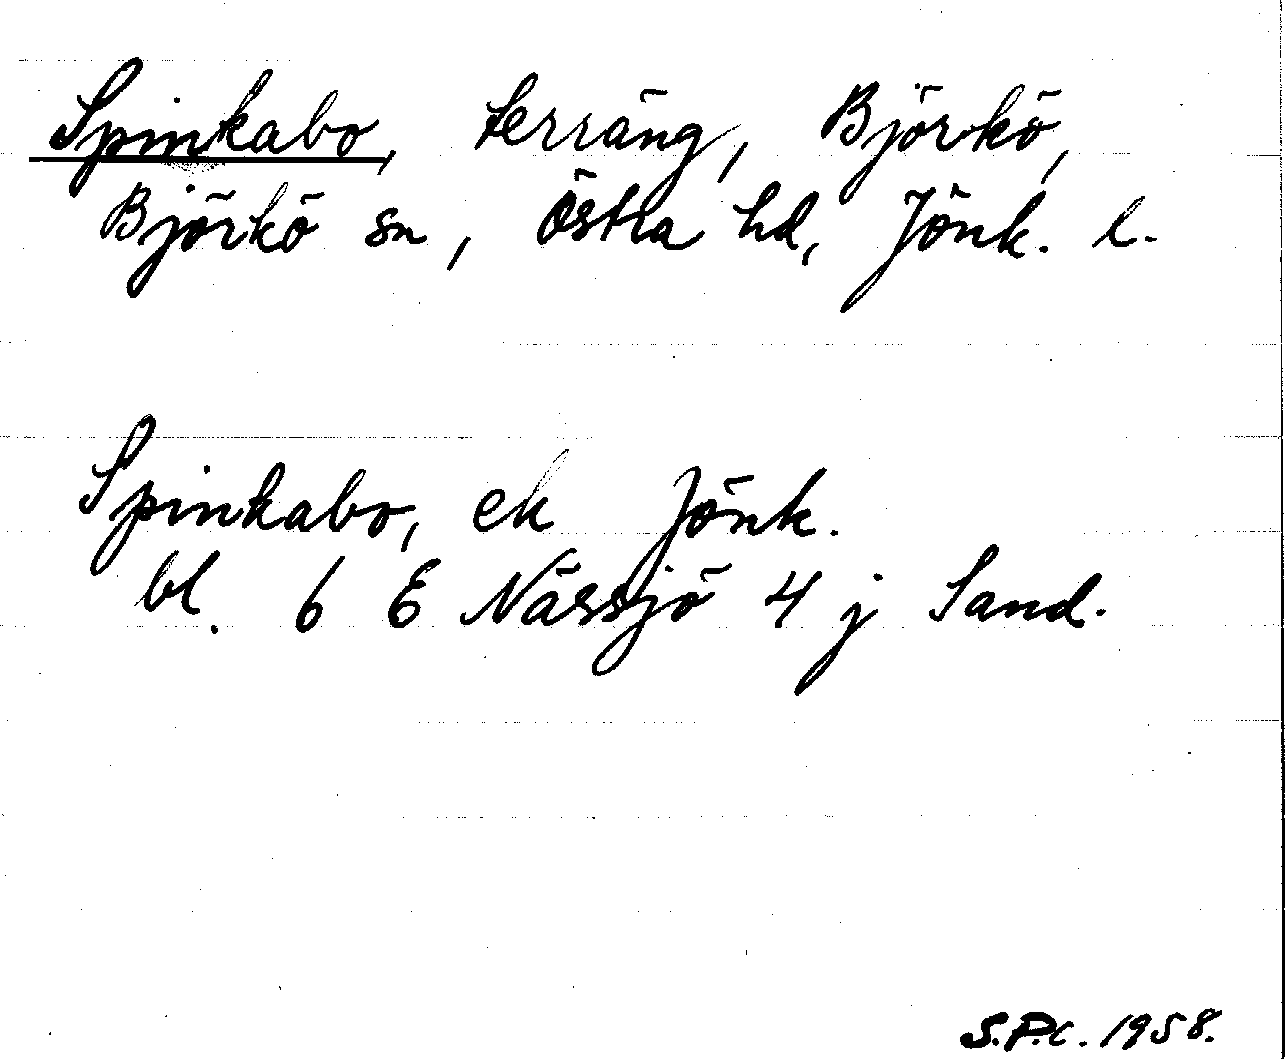 Spinkabo, terräng, Björkö,
Björkö sn, Östra hd, Jönk. l.
Spinkabo, ek Jönk.
bl. 6 E Nässjö 4 j Sand.
S.P.C. 1958.